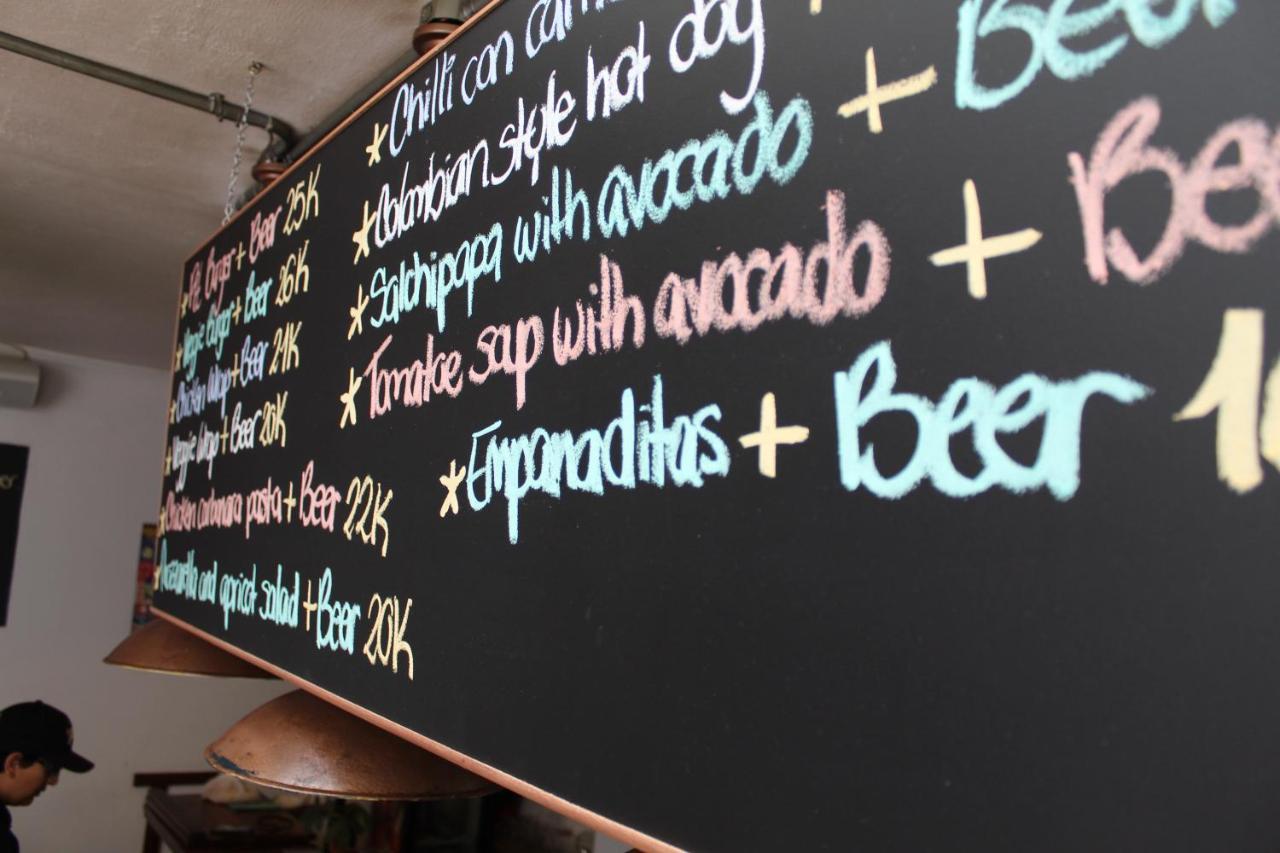 Burger + Beer 25K
* Veggie Burger + Beer 26K
* Chicken Wrap + Beer
* Veggie Wrap + Beer 20K
* Chicken carbonara pasta + Beer 22K
* and apricot salad + Beer 20K
* Chilli con
* Colombian style hot dog +
* Salchipapa with avocado + Beer
* Tomatoe soup with avocado +
* Empanaditas + Beer